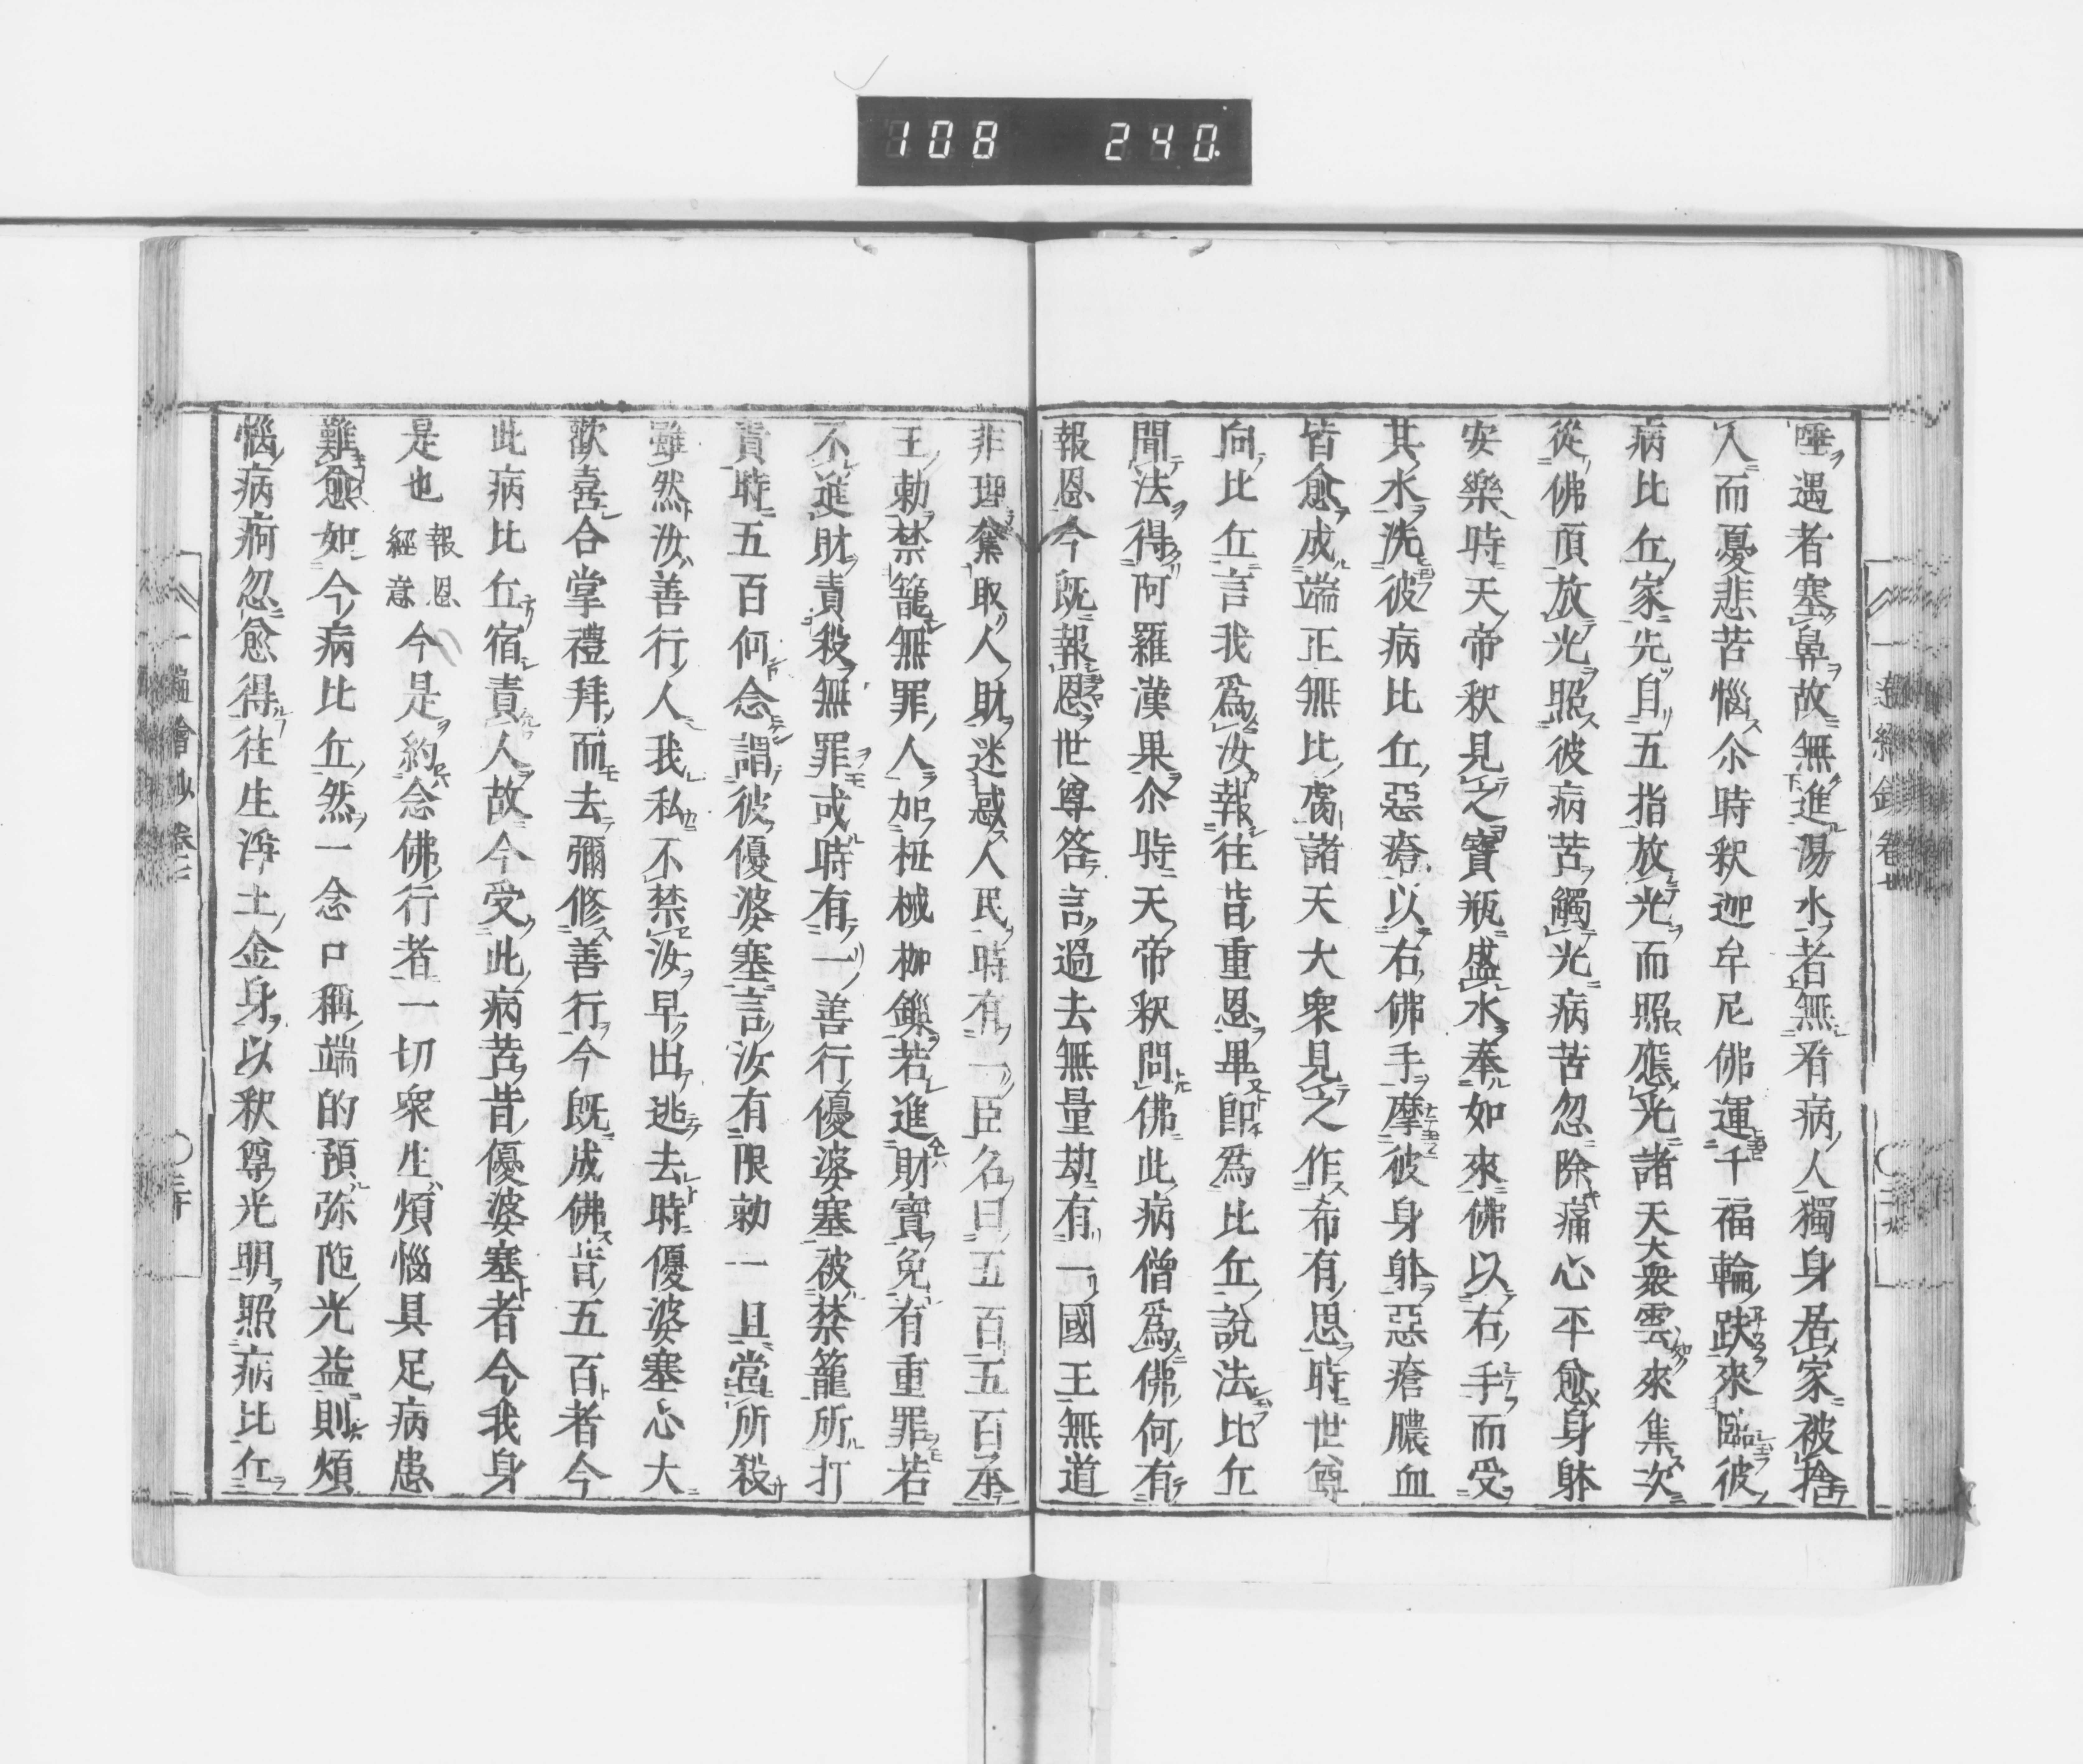 108 240
唾遇者塞鼻故無進湯水者無看病人獨身居家被捨
人而憂悲苦惱尒時釈迦牟尼佛運千福輪趺來臨彼
病比丘家先自五指放光而照應光諸天大衆雲來集次
從佛頂放光照彼病苦觸光病苦忽除痛心平愈身躰
安樂時天帝釈見之寶瓶盛水奉如來佛以右手而受
其水洗彼病比丘惡瘡以右佛手摩彼身躰惡瘡膿血
皆愈成端正無比腐諸天大衆見之作希有思時世尊
向比丘言我爲汝報往昔重恩畢即爲比丘說法比丘
聞法得阿羅漢果尒時天帝釈問佛此病僧爲佛何有
報恩今既報恩世尊答言過去無量劫有一國王無道
非理奪取人財迷惑人民時有一臣名曰五百五百承
王勅禁籠無罪人加杻械枷鏁若進財寶免有重罪若
不進財責殺無罪或時有一善行優婆塞被禁籠所打
責時五百何念謂彼優婆塞言汝有限勅一旦當所殺
雖然汝善行人我私不禁汝早出逃去時優婆塞心大
歡喜合掌禮拜而去彌修善行今既成佛昔五百者今
此病比丘宿責人故今受此病苦昔優婆塞者今我身
是也報恩經意今是約念佛行者一切衆生煩惱具足病患
難愈如今病比丘然一念口稱端的預弥陁光益則煩
惱病痾忽愈得往生淨土金身以釈尊光明照病比丘